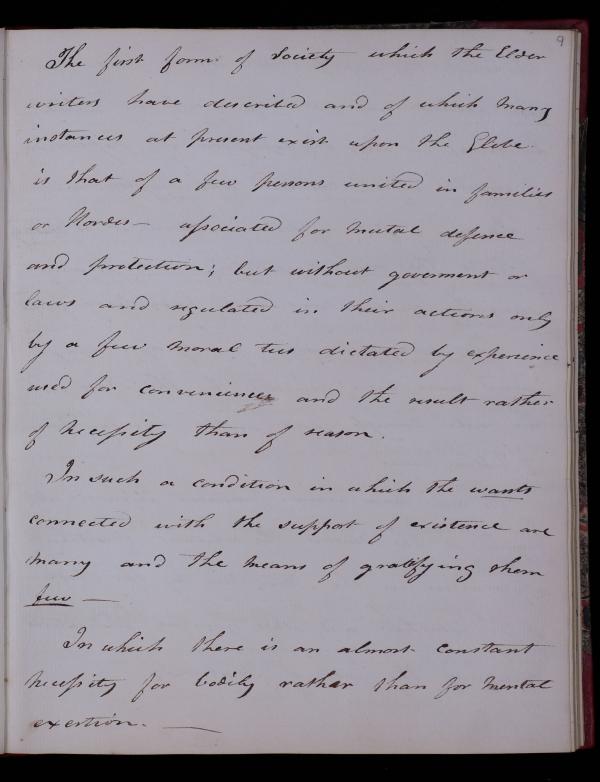 9
The first form of Society which the Elder
writers have described and of which many
instances at present exist upon the Globe
is that of a few persons united in families
or Hordes – associated for mutal defence
and protection; but without goverment or
laws and regulated in their actions only
by a few moral ties dictated by experience
used for convenience and the result rather
of necessity than of reason.
In such a condition in which the wants
connected with the support of existence are
many and the means of gratifying them
few —
In which there is an almost constant
necessity for bodily rather than for mental
exertion. —